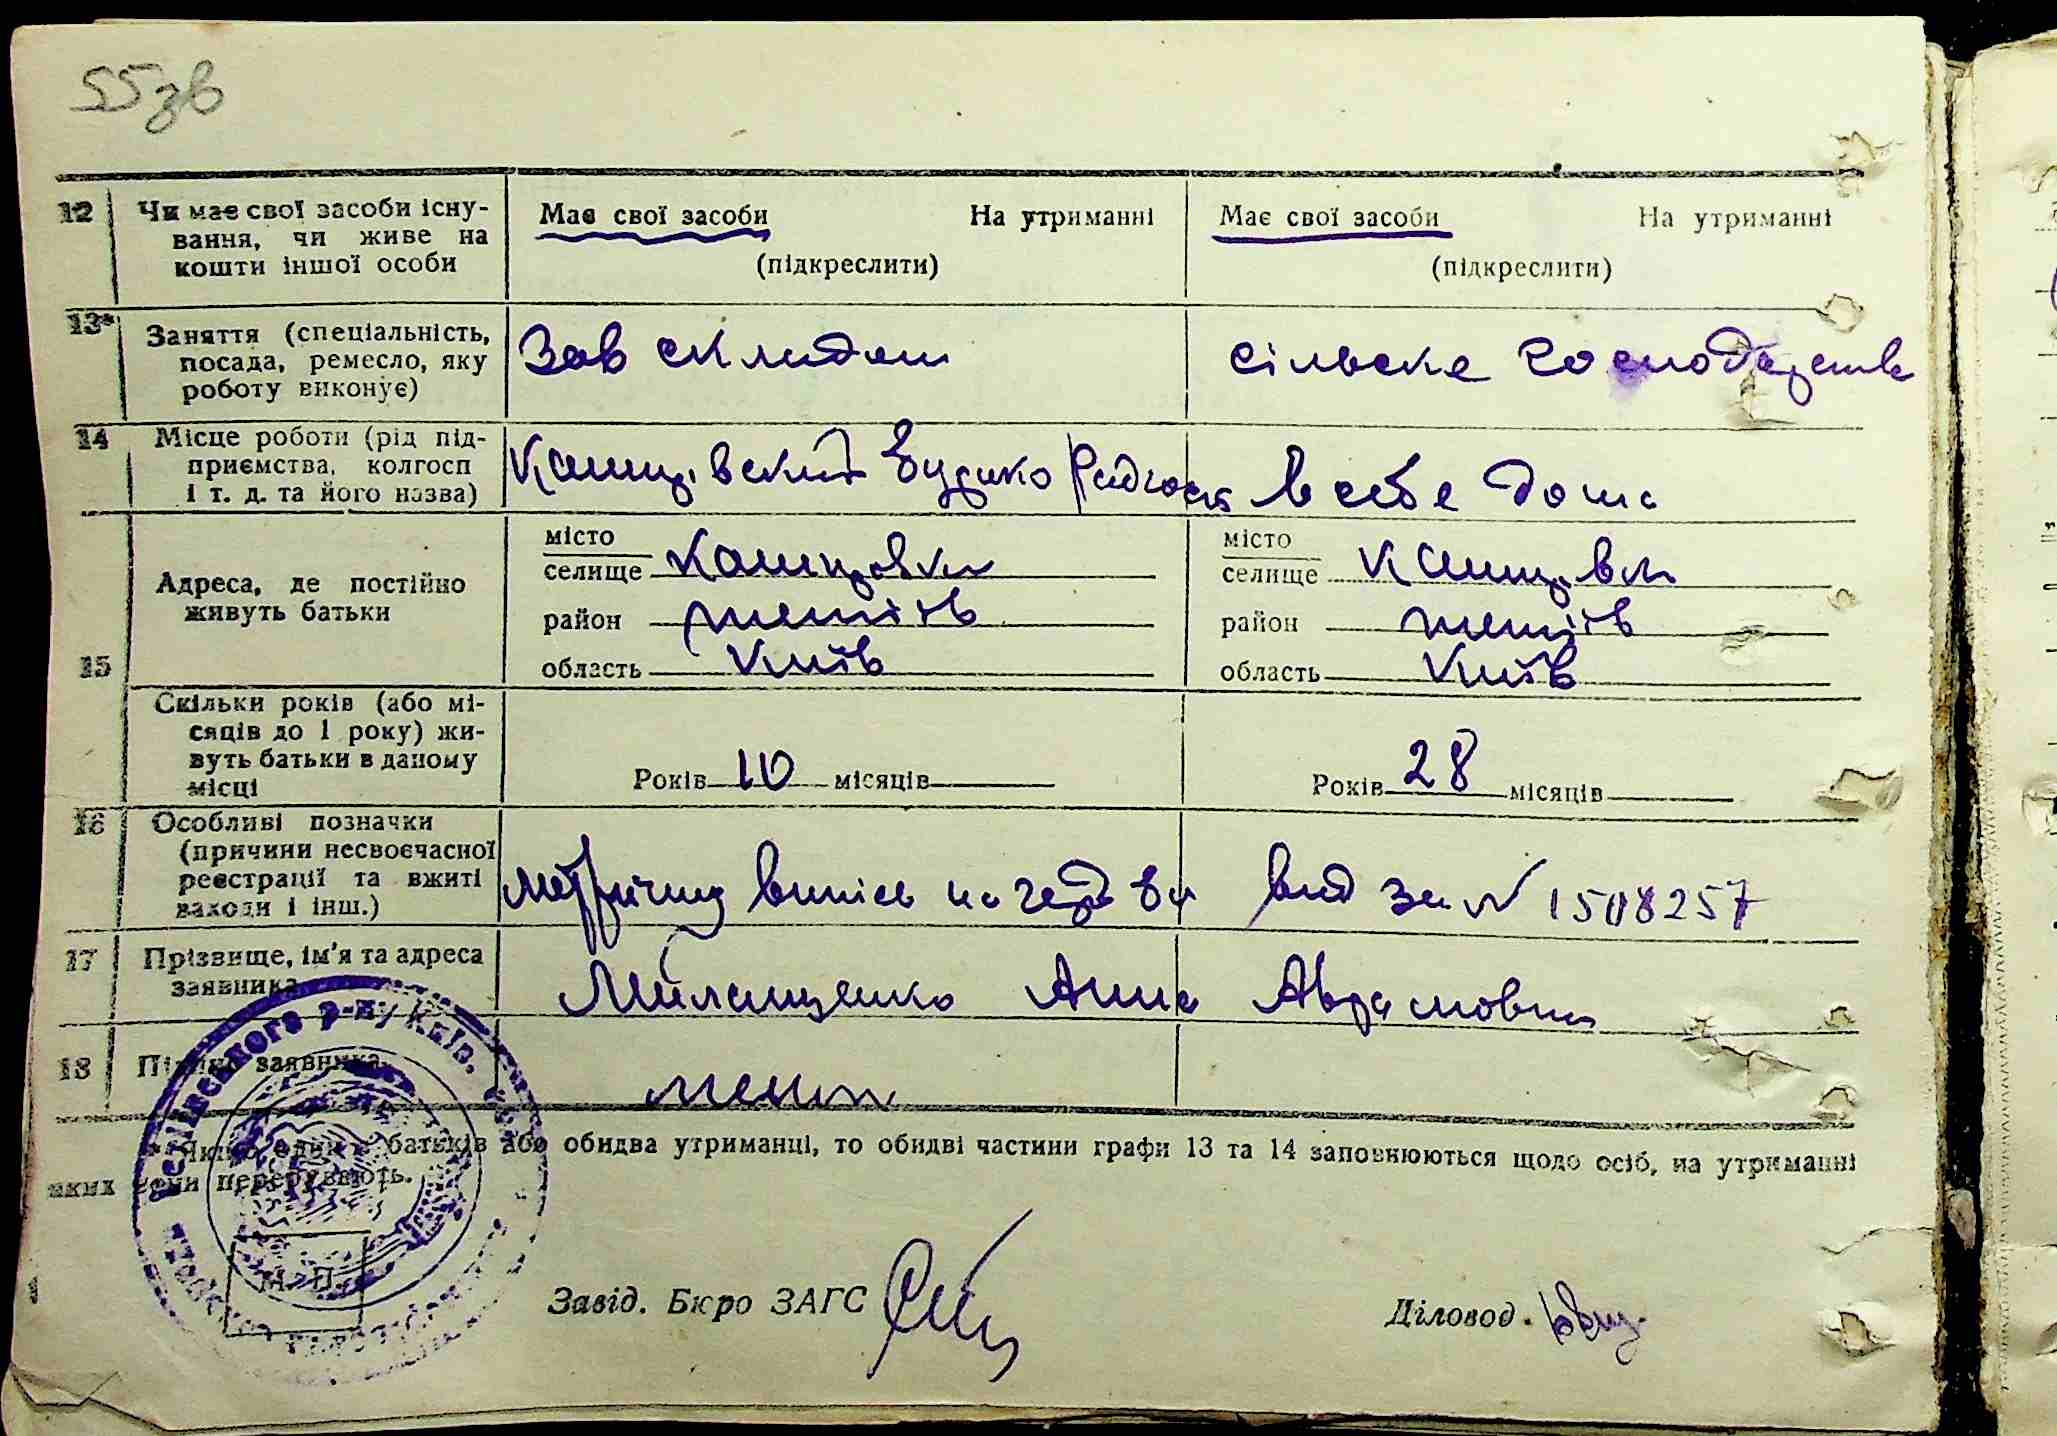 55зв
12 Чи має свої засоби існу-
вання, чи живе на
кошти іншої особи
Має свої засоби На утриманні
(підкреслити)
Має свої засоби На утриманні
(підкреслити)
13* Заняття (спеціальність,
посада, ремесло, яку
роботу виконує)
Зав складом
сільске господарство
14 Місце роботи (рід під-
приємства, колгосп
і т. д. та його назва)
Кашпірвский Буряко Радгосп
в себе дома
15 Адреса, де постійно
живуть батьки
місто
селище Кашпровки
район тетіїв
область Київ
місто
селище Кашпровки
район тетіїв
область Київ
Скільки років (або мі-
сяців до 1 року) жи-
вуть батьки в даному
місці
Років 10 місяців
Років 28 місяців
16 Особливі позначки
(причини несвоєчасної
реєстрації та вжиті
заходи і інш.)
вид за № 1508257
17 Прізвище, ім'я та адреса
заявника
Анна Аврамовна
18 Підпис заявника
* Якщо один з батьків або обидва утриманці, то обидві частини графи 13 та 14 заповнюються щодо осіб, на утриманні
яких вони перебувають.
М. П.
Завід. Бюро ЗАГС
Діловод